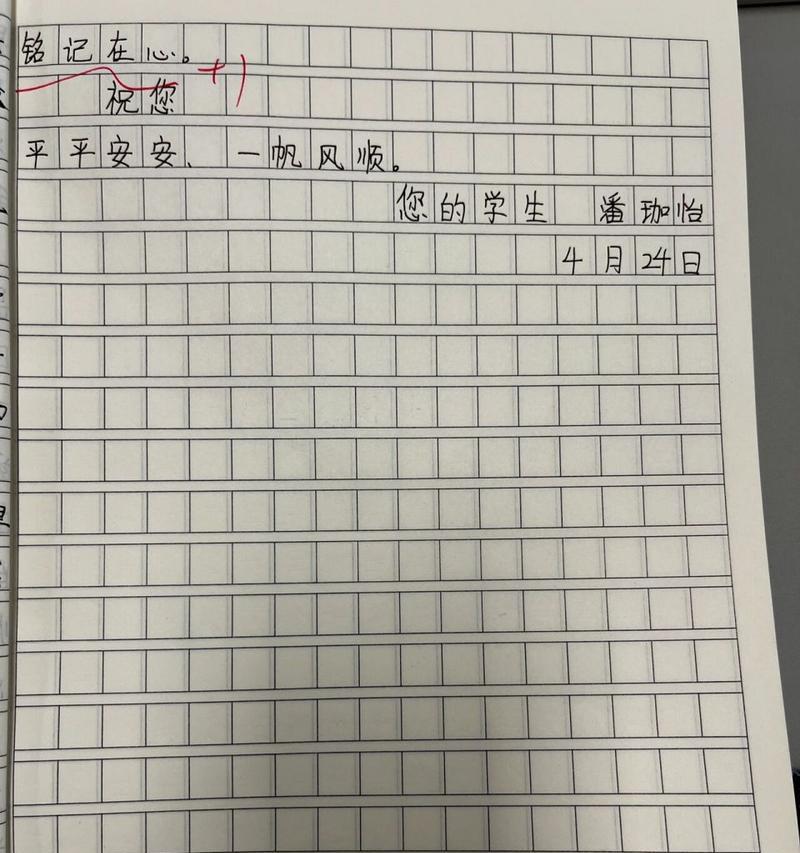 铭记在心。 +1
祝您
平平安安、一帆风顺。
您的学生 潘珈怡
4月24日